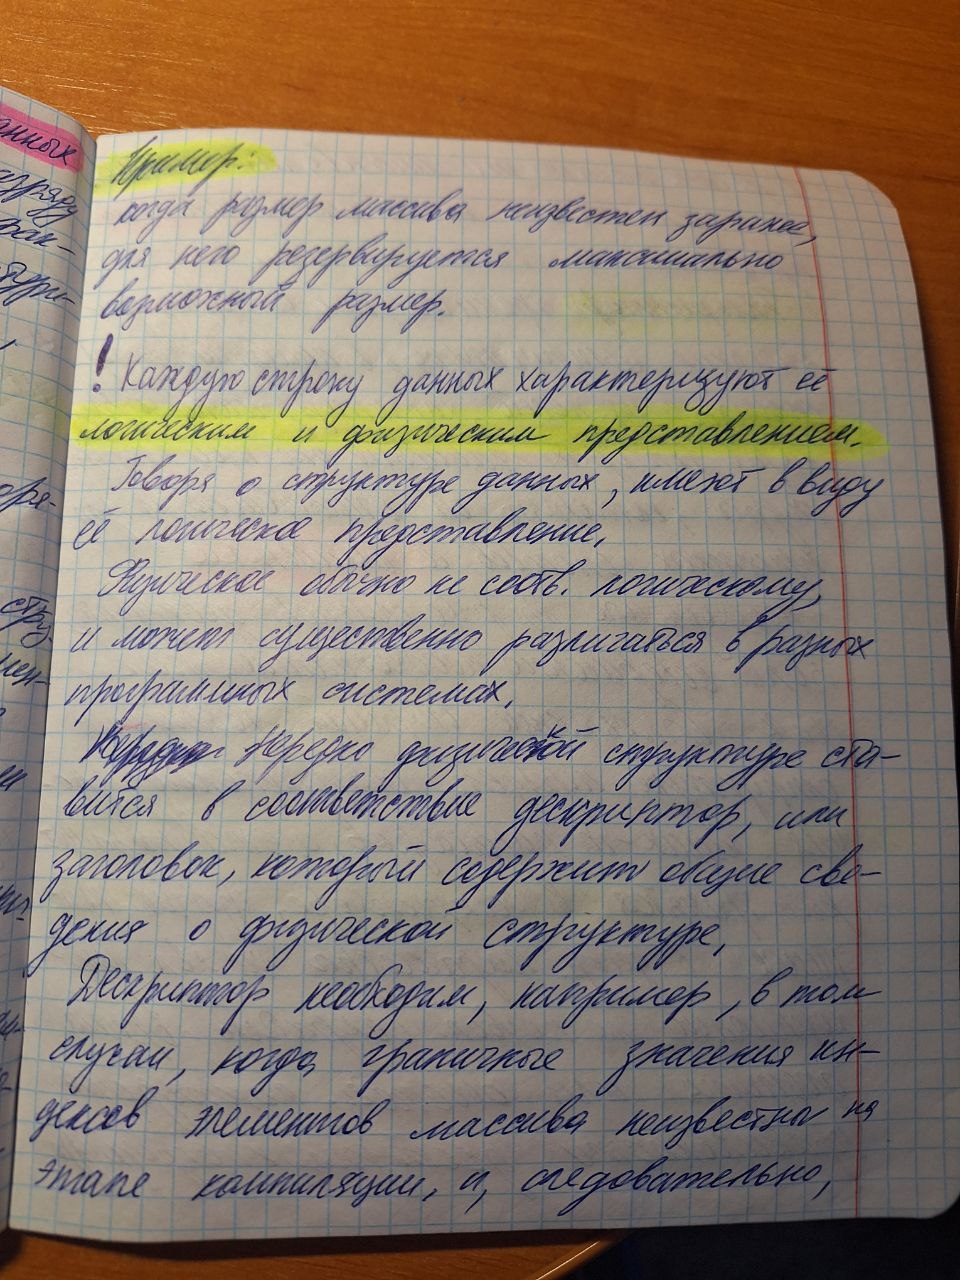 Пример:
когда размер массива неизвестен заранее,
для него резервируется максимально
возможный размер.
! Каждую строку данных характеризуют её
логическим и физическим представлением.
Говоря о структуре данных, имеют в виду
её логическое представление.
Физическое обычно не соотв. логическому,
и может существенно различаться в разных
программных системах.
Нередко физической структуре ста-
вится в соответствие дескриптор, или
заголовок, который содержит общие све-
дения о физической структуре.
Дескриптор необходим, например, в том
случаи, когда граничные значения ин-
дексов элементов массива неизвестны на
этапе компиляции, и, следовательно,